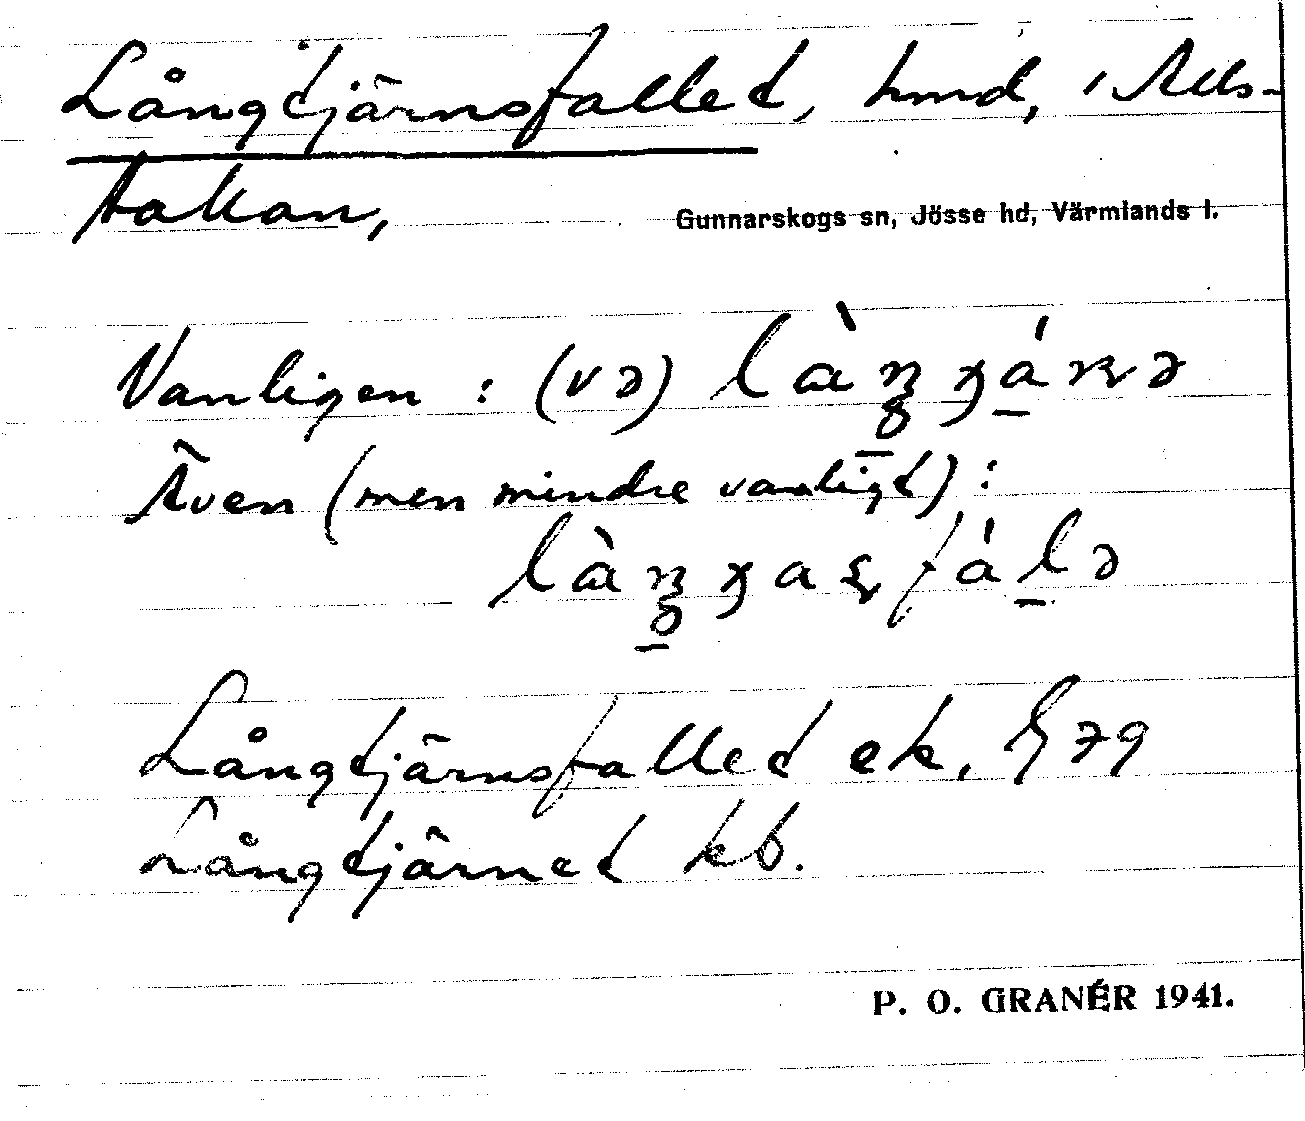 Långtjärnsfallet, hmd, i Åls-
takan,
Gunnarskogs sn, Jösse hd, Värmlands l.
Vanligen : (və)
Även (men mindre vanligt) :
Långtjärnsfallet ek.
Långtjärnet kb.
P. O. GRANÉR 1941.